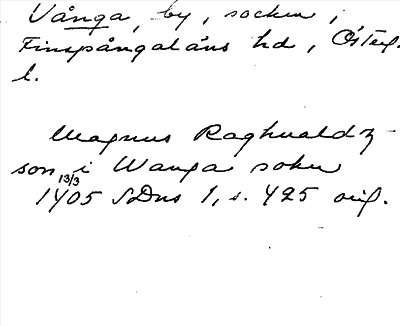 Vånga, by, socken i
Finspångaläns hd, Österg.
l.
Magnus Raghualdz
son i Wanga sokn
13/3
1405 SDns 1, s. 425 orig.